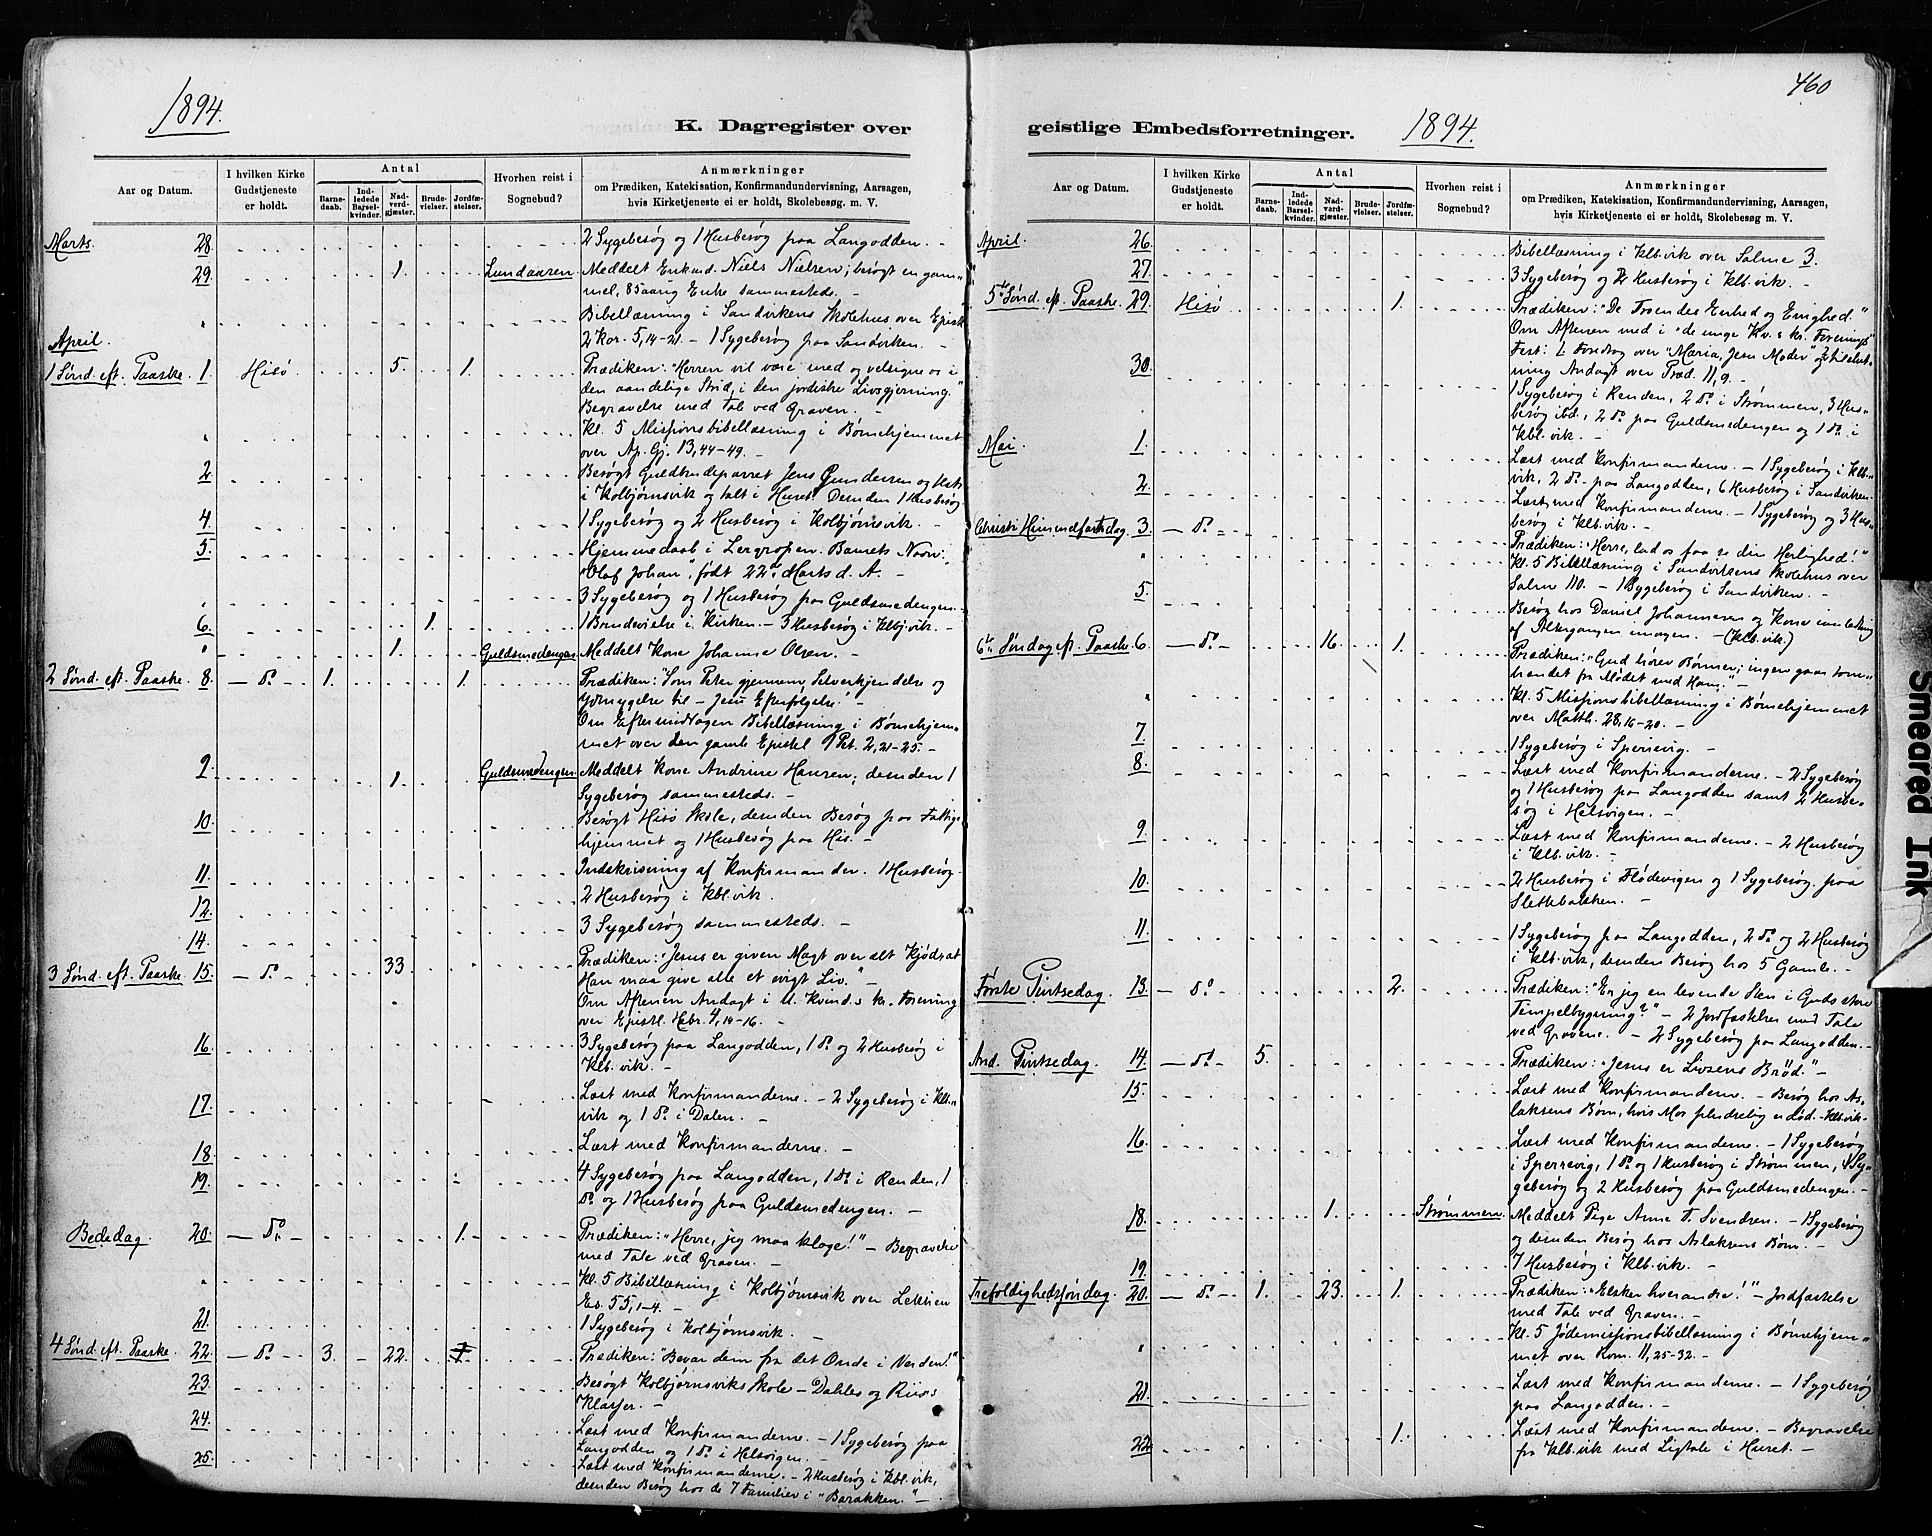 1894.
K. Dagregister over
Aar og Datum.
I hvilken Kirke Gudstjeneste er holdt.
Antal
Barne-daab.
Ind-ledede Barsel-kvinder.
Nad-verd-gjæster.
Brude-vielser.
Jordfæ-stelser.
Hvorhen reist i Sognebud?
Anmærkninger
om Prædiken, Katekisation, Konfirmandundervisning, Aarsagen,
hvis Kirketjeneste ei er holdt, Skolebesøg. m. V.
Marts. 28. 2 Sygebesøg og 1 Husbesøg paa Langodden. -
29. 1. Lundaaren. Meddelt Enkemd. Niels Nielsen; besøgt en gam-
mel, 85aarig Enke sammesteds. -
" Bibellæsning i Sandvikens Skolehus over Epistl.
2 Kor. 5, 14-21. - 1 Sygebesøg paa Sandviken. -
April.
1 Sønd. eft. Paaske. 1. Hisø 5. 1. Prædiken: "Herren vil være med og velsigne os i
den aandelige Strid, i den jordiske Livsgjerning."
Begravelse med Tale ved Graven. -
" Kl. 5 Missionsbibellæsning i Børnehjemmet
over Ap. Gj. 13, 44-49. -
2. Besøgt Guldbrudeparret Jens Gundersen og Hst.
i Kolbjørnsvik og talt i Huset. Desuden 1 Husbesøg
4. 1 Sygebesøg og 2 Husbesøg i Kolbjørnsvik. -
5. Hjemmedaab i Lergropen. Barnets Navn:
"Olaf Johan", født 22de Marts d. A. -
" 3 Sygebesøg og 1 Husbesøg paa Guldsmedengen.
6. 1. 1 Brudevielse i Kirken. - 3 Husbesøg i Klbj.vik. -
" 1. Guldsmedengen Meddelt Kone Johanne Olsen. -
2 Sønd. eft. Paaske. 8. - Do - 1. 1. Prædiken: "Som Peter gjennem Selverkjendelse og
Ydmygelse til - Jesu Efterfølgelse!" -
Om Eftermiddagen Bibellæsning i Børnehjem-
met over den gamle Epistel 1 Pet. 2, 21-25. -
9. 1. Guldsmedengen Meddelt Kone Andrine Hansen; desuden 1
Sygebesøg sammesteds. -
10. Besøgt Hisø Skole, desuden Besøg paa Fattig-
hjemmet og 1 Husbesøg paa His. -
11. Indskrivning af Konfirmander. 1 Husbesøg.
12. 2 Husbesøg i Kbl.vik.
14. 3 Sygebesøg sammesteds. -
3 Sønd. eft. Paaske. 15. - Do - 33. Prædiken: "Jesus er given Magt over alt Kjød, at
Han maa give alle et evigt Liv."
Om Aftenen Andagt i U. Kvind.s kr. Forening
over Epistl. Hebr. 4, 14-16. -
16. 3 Sygebesøg paa Langodden, 1 Do og 2 Husbesøg i
Klb.vik. -
17. Læst med Konfirmanderne. - 2 Sygebesøg i Klb.-
vik og 1 Do i Dalen. -
18. Læst med Konfirmanderne. -
19. 4 Sygebesøg paa Langodden, 1 Do i Renden, 1
Do og 1 Husbesøg paa Guldsmedengen. -
Bededag. 20. - Do - 1. Prædiken: "Herre, jeg maa klage!" - Begravelse
med Tale ved Graven. -
" Kl. 5 Bibellæsning i Kolbjørnsvik over Lektien
Es. 55, 1-4. -
21. 1 Sygebesøg i Kolbjørnsvik. -
4 Sønd. eft. Paaske. 22. - Do - 3. 22. Prædiken: "Bevar dem fra det Onde i Verden!" -
23. Besøgt Kolbjørnsviks Skole - Dahles og Riis's
Klasser. -
24. Læst med Konfirmanderne. - 1 Sygebesøg paa
Langodden og 1 Do i Helsvigen. -
25. Læst med Konfirmanderne. - 2 Husbesøg i Kbl.vik,
desuden Besøg hos de 7 Familier i "Barakken." -
460
geistlige Embedsforretninger.
1894.
Aar og Datum.
I hvilken Kirke Gudstjeneste er holdt.
Antal
Barne-daab.
Ind-ledede Barsel-kvinder.
Nad-verd-gjæster.
Brude-vielser.
Jordfæ-stelser.
Hvorhen reist i Sognebud?
Anmærkninger
om Prædiken, Katekisation, Konfirmandundervisning, Aarsagen,
hvis Kirketjeneste ei er holdt, Skolebesøg m. V.
April. 26. Bibellæsning i Klb.vik over Salme 3.
" 27. 3 Sygebesøg og 2 Husbesøg i Klb.vik. -
5te Sønd. eft. Paaske. 29. Hisø 1. Prædiken: "De Troendes Enhed og Enighed."
Om Aftenen med i "de unge Kv.s kr. Forenings"
Fest: 1 Foredrag over "Maria, Jesu Moder" og
ning Andagt over Præd. 11, 9. -
30. 1 Sygebesøg i Renden, 2 Do i Strømmen, 3 Hus-
besøg ibd., 2 Do paa Guldsmedengen og 1 Do i
Kbl.vik. -
Mai. 1. Læst med Konfirmanderne. - 1 Sygebesøg i Klb.-
vik, 2 Do paa Langodden, 6 Husbesøg i Sandviken.
2. Læst med Konfirmanderne. - 1 Sygebesøg og 3 Hus-
besøg i Klb.vik. -
Christi Himmelfartsdag. 3. - Do - Prædiken: "Herre, lad os faa se din Herlighed!"
" Kl. 5 Bibellæsning i Sandvikens Skolehus over
Salme 110. - 1 Sygebesøg i Sandviken. -
5. Besøg hos Daniel Johannesen og Kone
af Altergangen imorgen. - (Klb.vik)
6te Søndag eft. Paaske 6. - Do - 16. 1. Prædiken: "Gud hører Bønner; ingen gaar tom-
hændet fra Mødet med Ham." -
" Kl. 5 Missionsbibellæsning i Børnehjemmet
over Matth. 28, 16-20. -
7. 1 Sygebesøg i Sperrevig. -
8. Læst med Konfirmanderne. - 2 Sygebesøg
og 1 Husbesøg paa Langodden samt 2 Husbe-
søg i Helsvigen. -
9. Læst med Konfirmanderne. - 2 Husbesøg
i Klb.vik. -
10. 2 Husbesøg i Flødevigen og 1 Sygebesøg paa
Slettebakken. -
11. 1 Sygebesøg paa Langodden, 2 Do og 2 Husbesøg
i Klb.vik, desuden Besøg hos 5 Gamle. -
Første Pintsedag. 13. - Do - 2. Prædiken: "Er jeg en levende Sten i Guds store
Tempelbygning?" - 2 Jordfæstelser med Tale
ved Gravene. - 2 Sygebesøg paa Langodden. -
And. Pintsedag. 14. - Do - 5. Prædiken: "Jesus er Livsens Brød." -
15. Læst med Konfirmanderne. - Besøg hos As-
laksens Børn, hvis Mor pludselig er død. - Klb.vik. -
16. Læst med Konfirmanderne. - 1 Sygebesøg
i Sperrevig, 1 Do og 1 Husbesøg i Strømmen, 4 Sy-
gebesøg og 2 Husbesøg paa Guldsmedengen. -
18. 1. Strømmen. Meddelt Pige Anne T. Svendsen. - 1 Sygebesøg
og desuden Besøg hos Aslaksens Børn. -
19. 7 Husbesøg i Klb.vik. -
Trefoldighedssøndag. 20. - Do - 1. 23. 1. Prædiken: "Elsker hverandre!" - Jordfæstelse
med Tale ved Graven. -
" Kl. 5 Jødemissionsbibellæsning i Børnehjem-
met over Rom. 11, 25-32. -
21. Læst med Konfirmanderne. - 1 Sygebesøg
paa Langodden. -
22. 1. Læst med Konfirmanderne. - Begravelse
fra Klb.vik med Ligtale i Huset. -
Smeared Ink